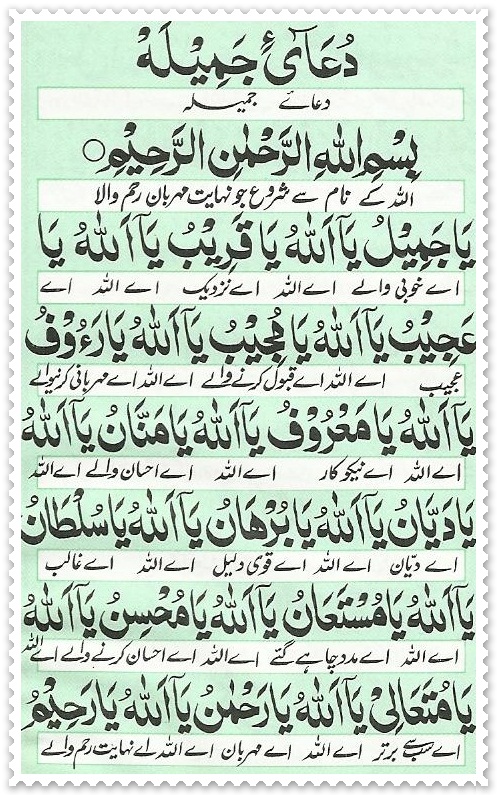 دُعَائ ئِ جَمِيْلَهْ
دعائے جمیلہ
بِسْمِ اللهِ الرَّحْمٰنِ الرَّحِيْمِ ○
اللہ کے نام سے شروع جو نہایت مہربان رحم والا
يَا جَمِيْلُ يَآ اَللهُ يَا قَرِيْبُ يَآ اَللهُ يَا
اے خوبی والے اے اللہ اے نزدیک اے اللہ اے
عَجِيْبُ يَآ اَللهُ يَا مُجِيْبُ يَآ اَللهُ يَا رَءُوْفُ
عجیب اے اللہ اے قبول کرنے والے اے اللہ اے مہربانی کرنیوالے
يَآ اَللهُ يَا مَعْرُوْفُ يَآ اَللهُ يَا مَنَّانُ يَآ اَللهُ
اے اللہ اے نیکو کار اے اللہ اے احسان والے اے اللہ
يَا دَيَّانُ يَآ اَللهُ يَا بُرْهَانُ يَآ اَللهُ يَا سُلْطَانُ
اے دیّان اے اللہ اے قوی دلیل اے اللہ اے غالب
يَآ اَللهُ يَا مُسْتَعَانُ يَآ اَللهُ يَا مُحْسِنُ يَآ اَللهُ
اے اللہ اے مدد چاہے گئے اے اللہ اے احسان کرنے والے اے اللہ
يَا مُتَعَالِىْ يَآ اَللهُ يَا رَحْمٰنُ يَآ اَللهُ يَا رَحِيْمُ
اے سب سے برتر اے اللہ اے مہربان اے اللہ اے نہایت رحم والے